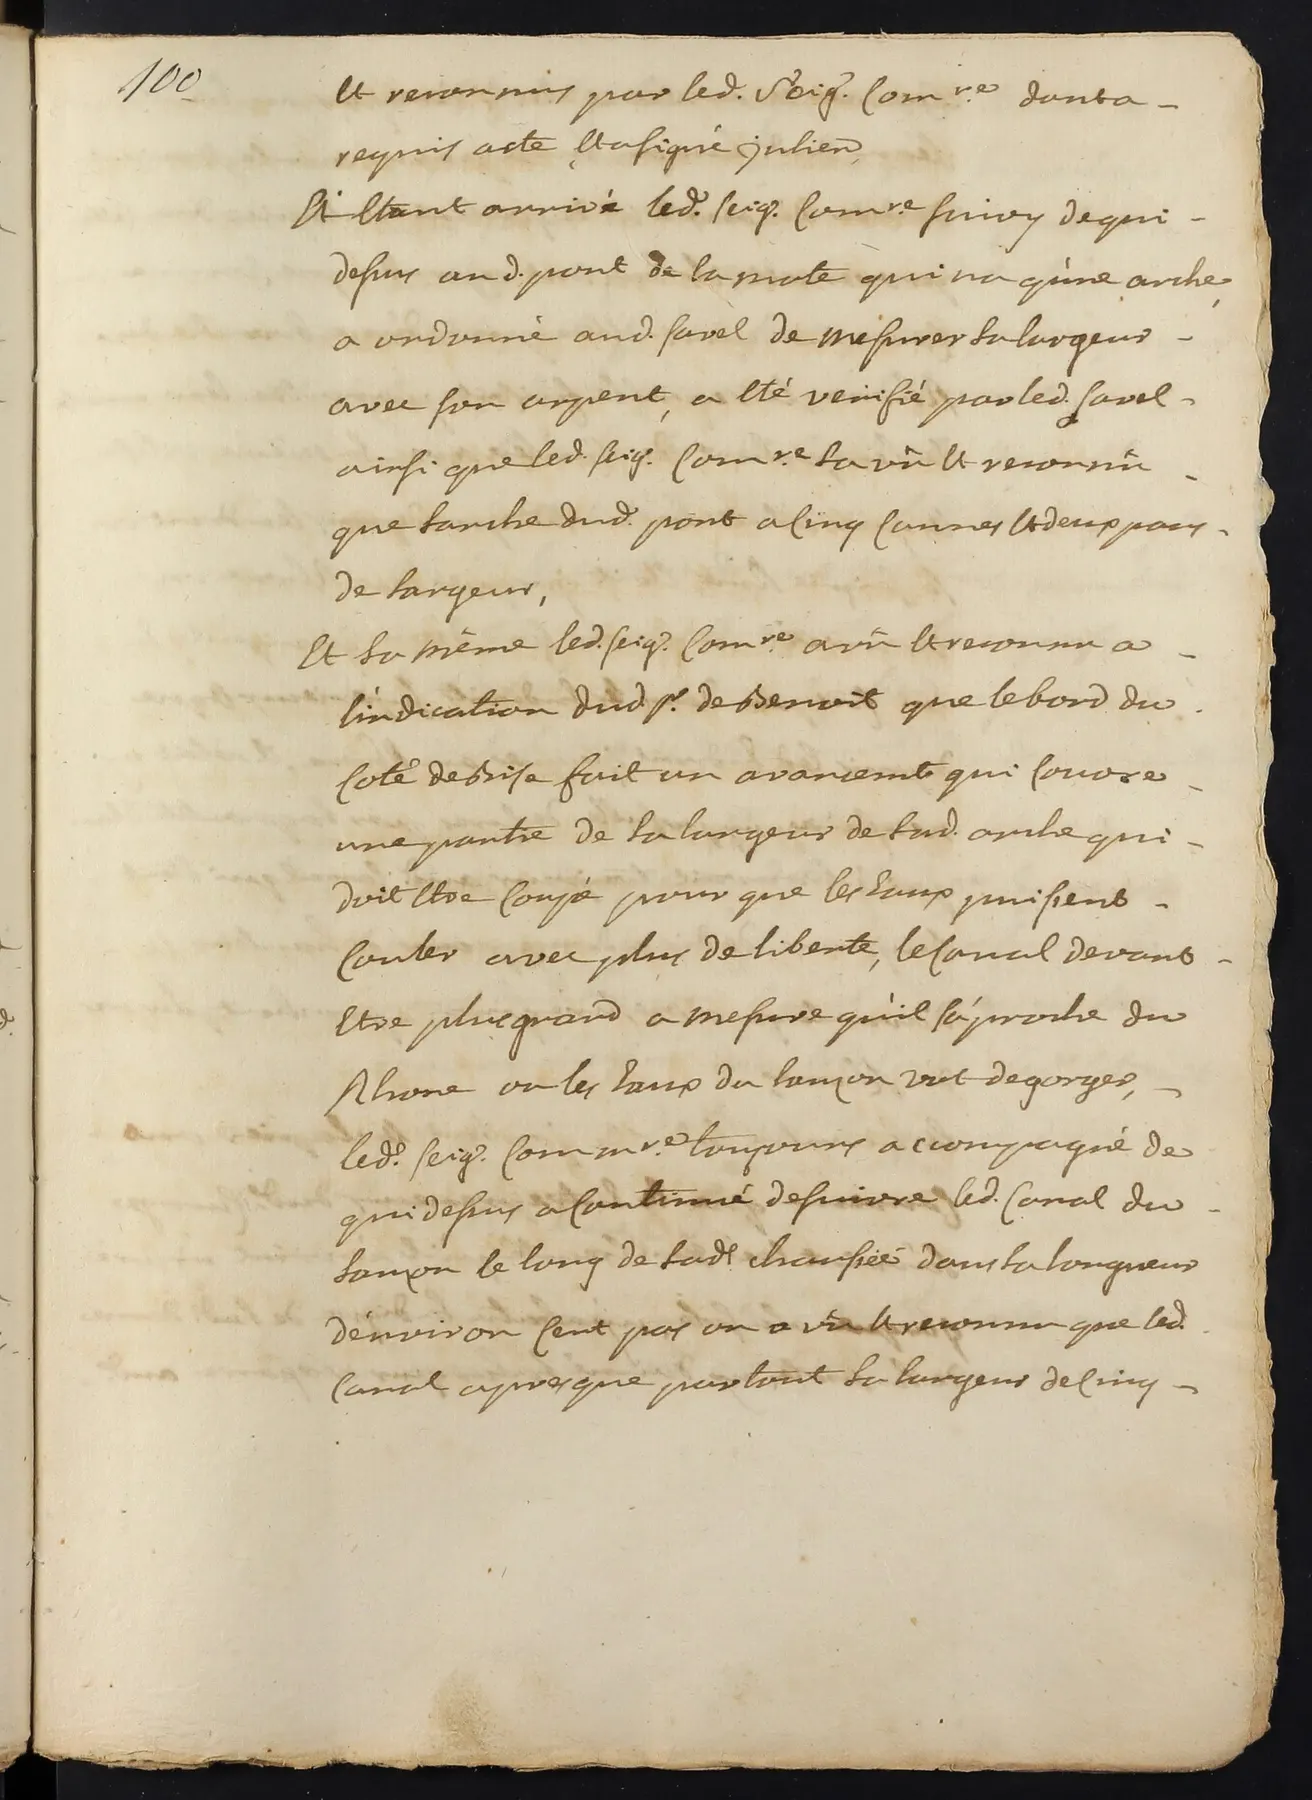 100
Et reconnus par led. Seig.r Com.re dont a
requis acte, Et a signé julien,
Et Etant arrivé led. seig.r Com.re suivy de qui
dessus au d. pont de la mote qui n'a qu'une arche,
a ordonné aud. favel de mesurer la largeur
avec son arpent, a Eté verifié par led. favel
ainsi que led. seig.r Com.re la vû Et reconnû
que l'arche dud. pont a Cinq Cannes Et deux pans
de largeur,
Et la même led. seig.r Com.re a vû Et reconnu a
l'indication dud. s.r de Benoit que le bord du
Coté de Bise fait un avancemt qui Couvre
une partie de la largeur de lad. arche qui
doit Etre Coupé pour que les Eaux puissent
Couler avec plus de liberté, le Canal devant
Etre plus grand a mesure qu'il s'aproche du
Rhone ou les Eaux du lauzon vont degorger,
led. seig.r Comm.re toujours accompagné de
qui dessus a Continué de suivre led. Canal du
lauzon le long de lad.e chaussée dans la longueur
d'environ Cent pas on a vû Et reconnu que led.
Canal a presque partout la largeur de Cinq